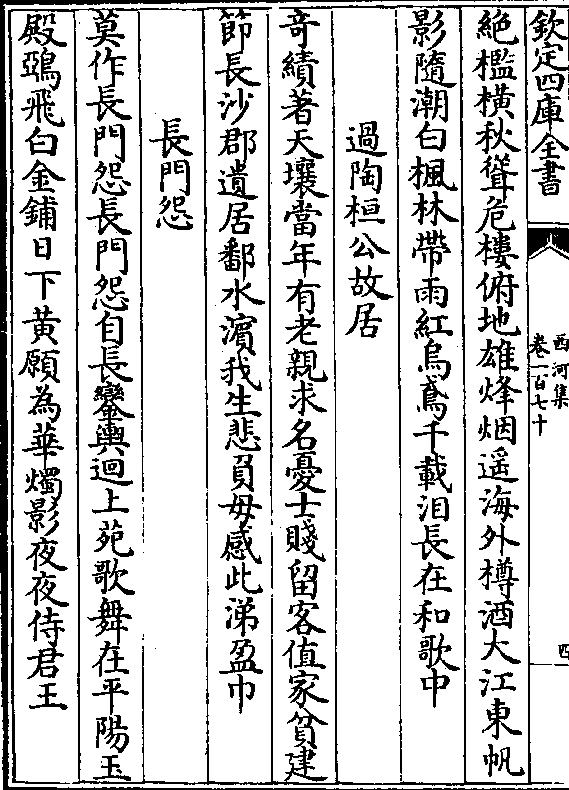 欽定四庫全書
西河集
卷一百七十
四
絶檻横秋聳危樓俯地雄烽烟遥海外樽酒大江東帆
影隨潮白楓林帶雨紅烏鳶千載泪長在和歌中
過陶桓公故居
竒績著天壤當年有老親求名憂士賤留客值家貧建
節長沙郡遺居鄱水濵我生悲負母感此涕盈巾
長門怨
莫作長門怨長門怨自長鑾輿迴上苑歌舞在平陽玉
殿鵶飛白金鋪日下黄願為華燭影夜夜侍君王